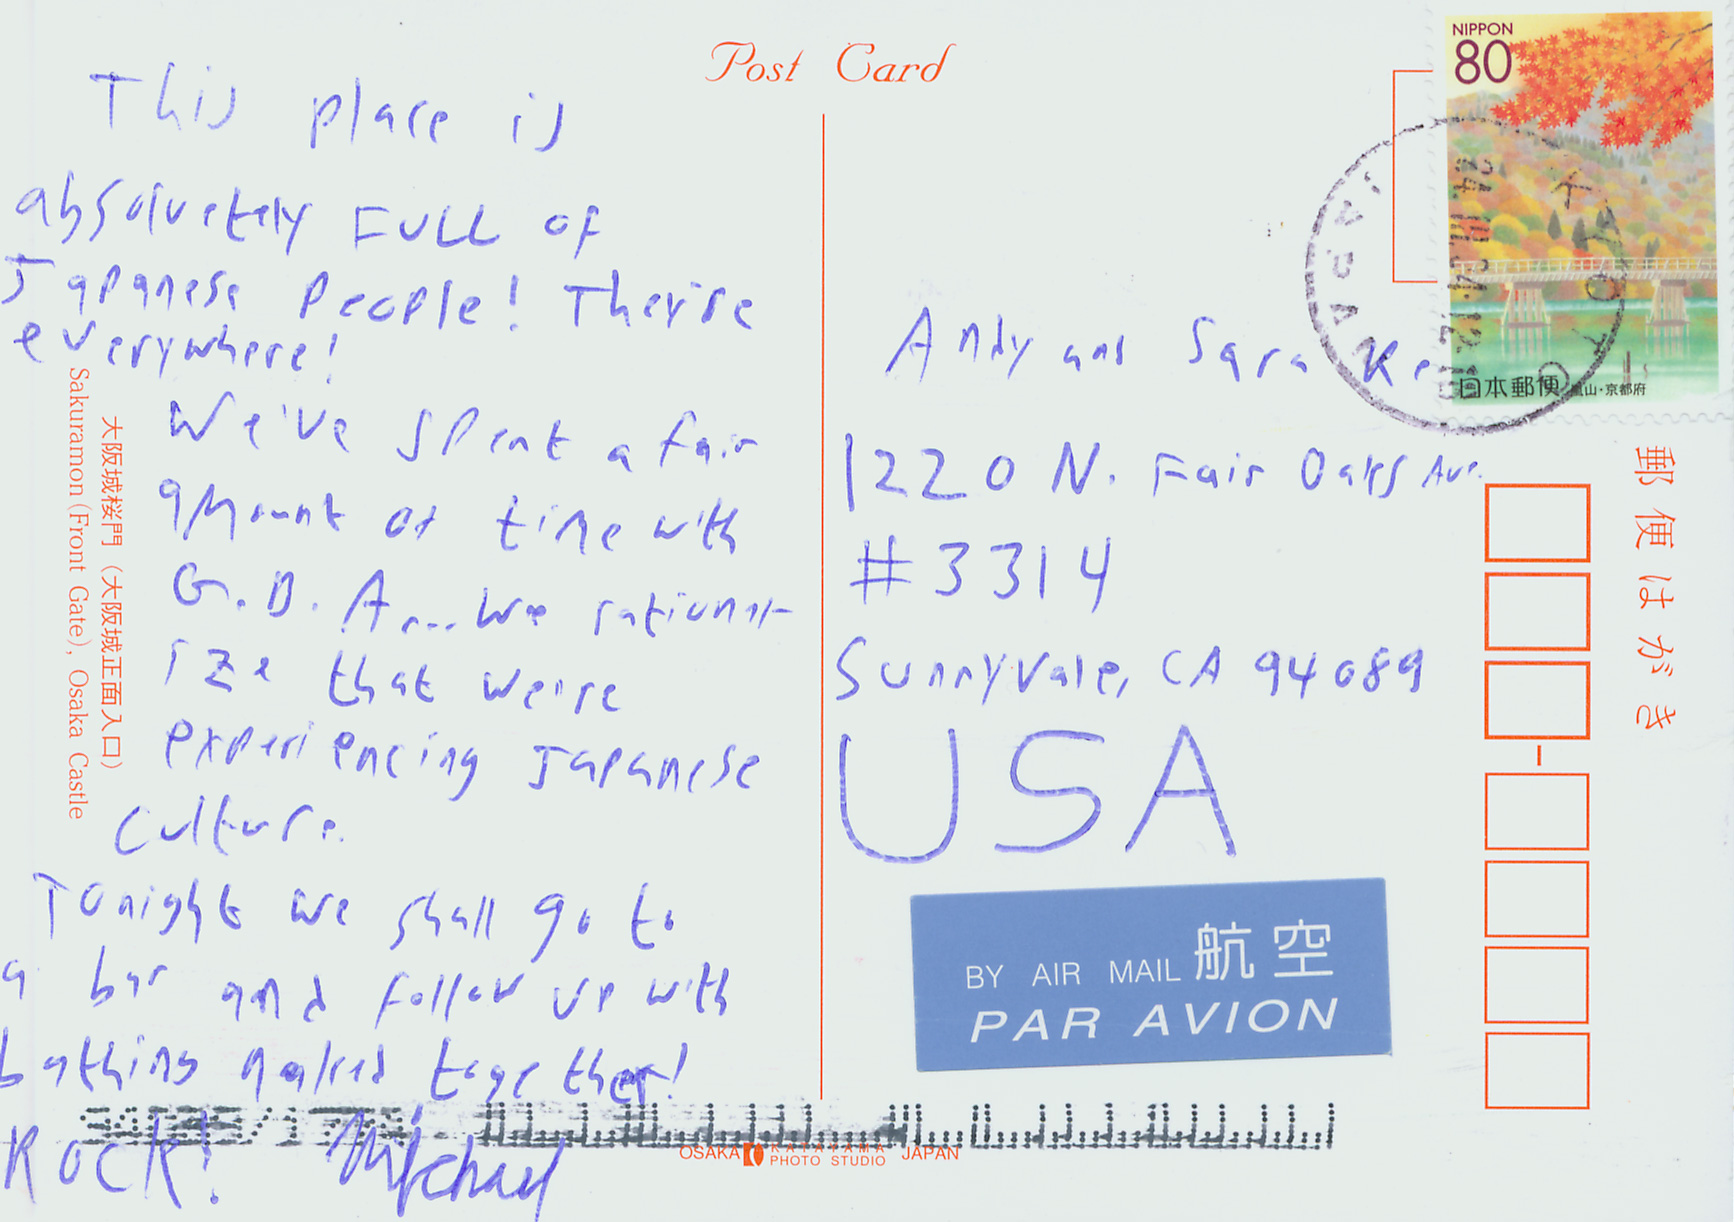 Post Card
This place is
absoluetely FULL of
Japanese people! They're
everywhere!
We've spent a fair
amount of time with
G.D.A... We rational-
ize that we're
experiencing Japanese
culture.
Tonight we shall go to
a bar and follow up with
bathing naked together!
Rock! Michael
大阪城桜門（大阪城正面入口）
Sakuramon (Front Gate), Osaka Castle
NIPPON
80
日本郵便 嵐山・京都府
JAPAN
Andy and Sara
1220 N. Fair Oaks Ave.
#3314
Sunnyvale, CA 94089
USA
BY AIR MAIL 航空
PAR AVION
郵便はがき
OSAKA KATAYAMA PHOTO STUDIO JAPAN